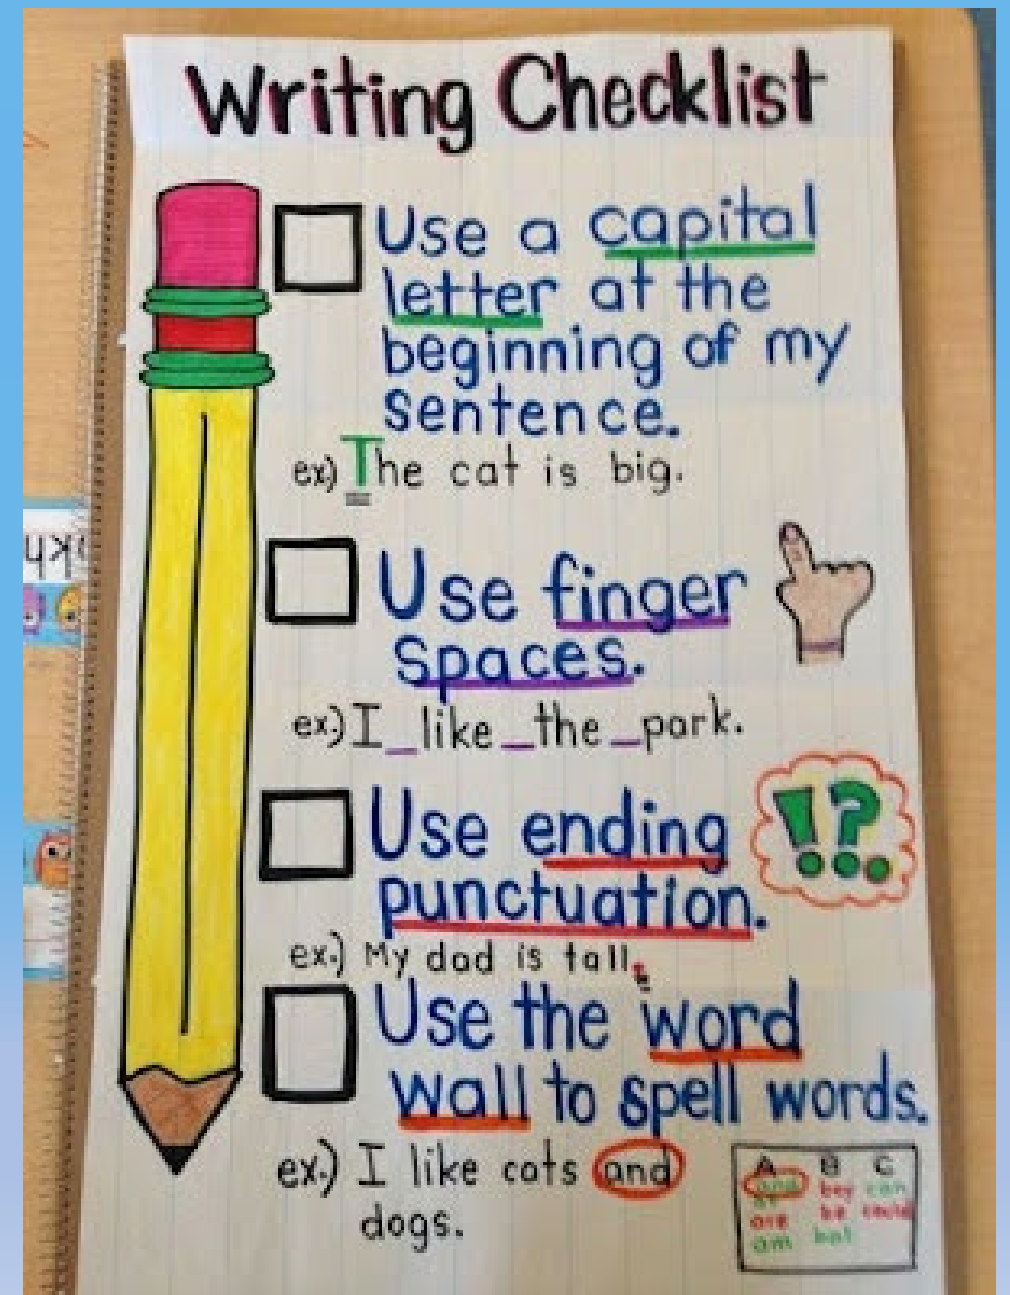 Writing Checklist
Use a capital
letter at the
beginning of my
sentence.
ex.) The cat is big.
Use finger
spaces.
ex.) I_like_the_park.
Use ending
punctuation.
! ? .
ex.) My dad is tall.
Use the word
wall to spell words.
ex.) I like cats and
dogs.
A B C
and boy can
are be could
am bat